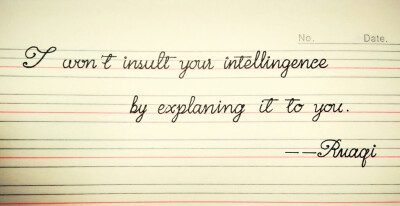 No. Date.
I won't insult your intellingence
by explaning it to you.
——Ruaqi